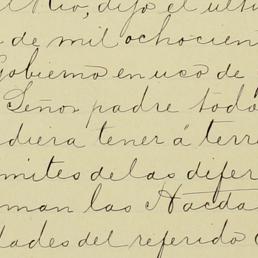 el Rio, dijo el ult
de mil ochocien
Gobierno en uso de
Señor padre todo
diera tener á terr
mites de las difer
man las Hacda
dades del referido